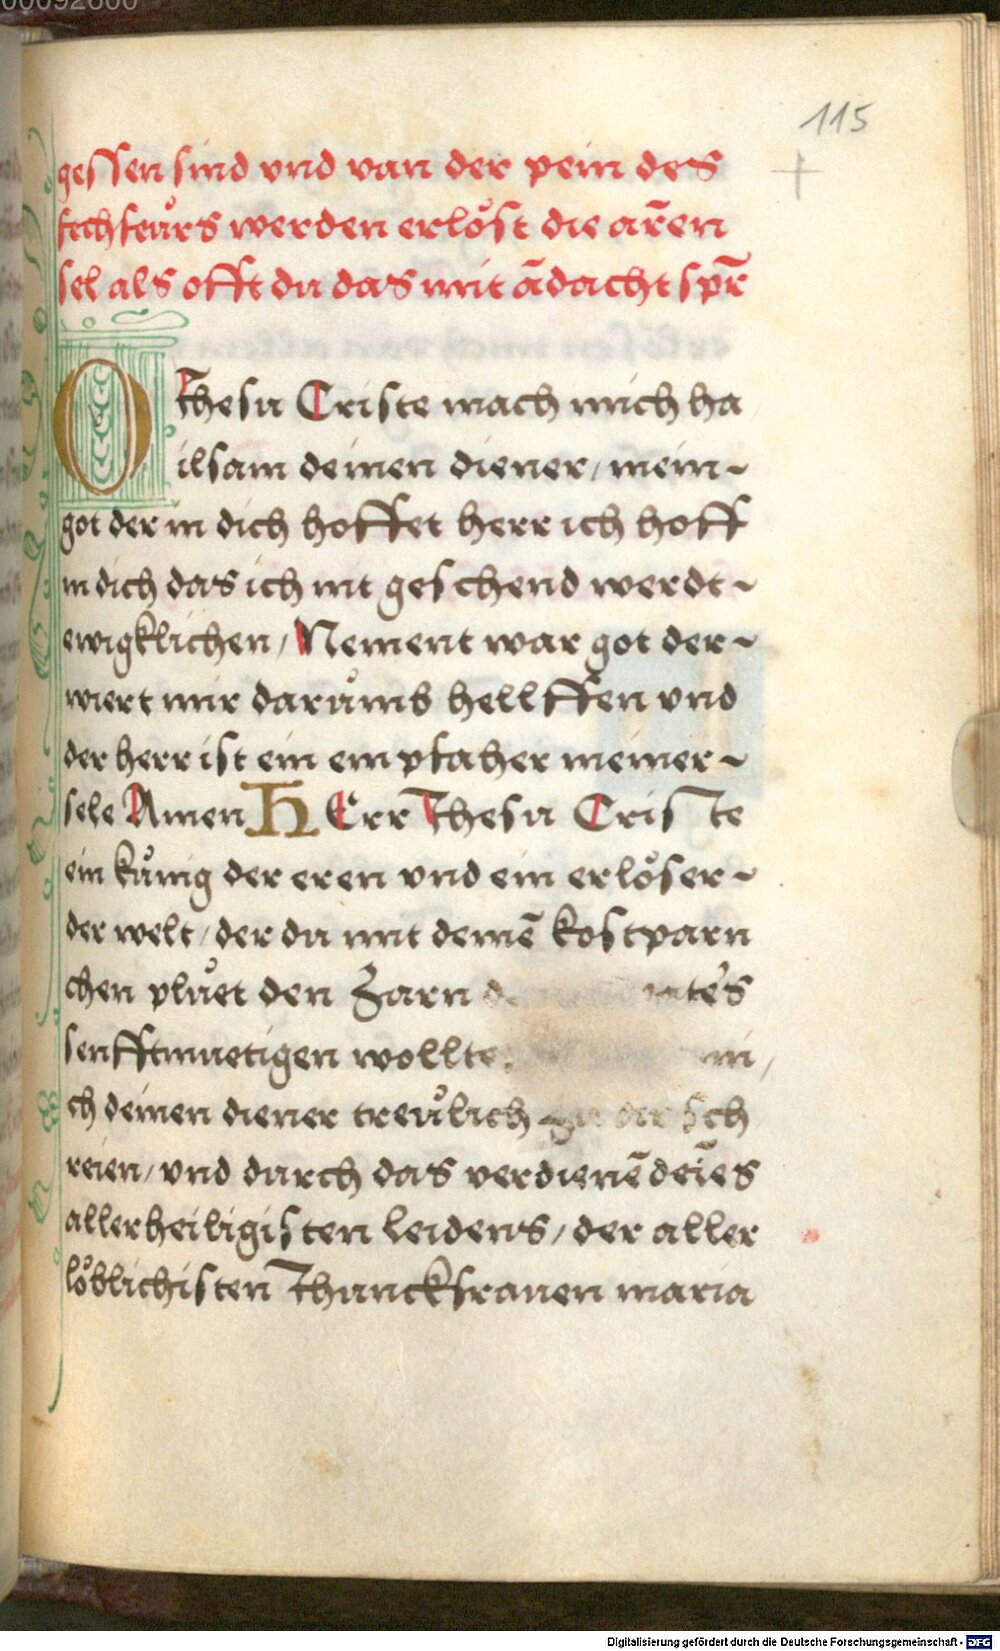 00092600
115
gessen sind vnd van der pein des
fechfeurs werden erlöst die ar̄en
sel als offt du das mit ādacht spr̄
O Jhesu Criste mach mich ha
ilsam deinen diener / mein~
got der in dich hoffet herr ich hoff
in dich das ich nit geschend werdt~
ewigklichen / Nement war got der~
wiert mir darůmb hellffen vnd
der herr ist ein empfaher meiner~
sele Amen HErr Jhesu Criste
ein kůnig der eren vnd ein erlöser~
der welt / der du mit deinē kostparn
chen plůet den Zarn
senfftmuetigen wollte
ch deinen diener treůlich zu dir sch
reien / vnd durch das verdienē deīes
allerheiligisten leidens / der aller
löblichisten Jhunckfrauen maria
Digitalisierung gefördert durch die Deutsche Forschungsgemeinschaft - DFG